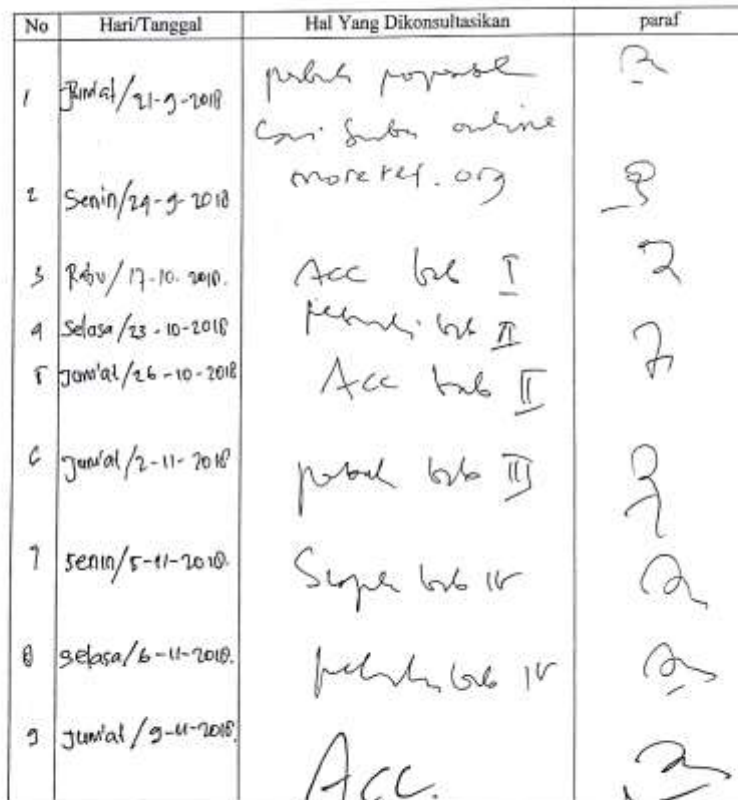 No Hari/Tanggal Hal Yang Dikonsultasikan paraf
1 Jum'at/21-9-2018 proposal
online
2 Senin/24-9-2018 moreref.org
3 Rabu/17-10-2018. Acc bab I
4 Selasa/23-10-2018 bab II
5 Jum'at/26-10-2018 Acc bab II
6 Jum'at/2-11-2018 bab III
7 Senin/5-11-2018. bab IV
8 Selasa/6-11-2018. bab IV
9 Jum'at/9-11-2018. Acc.